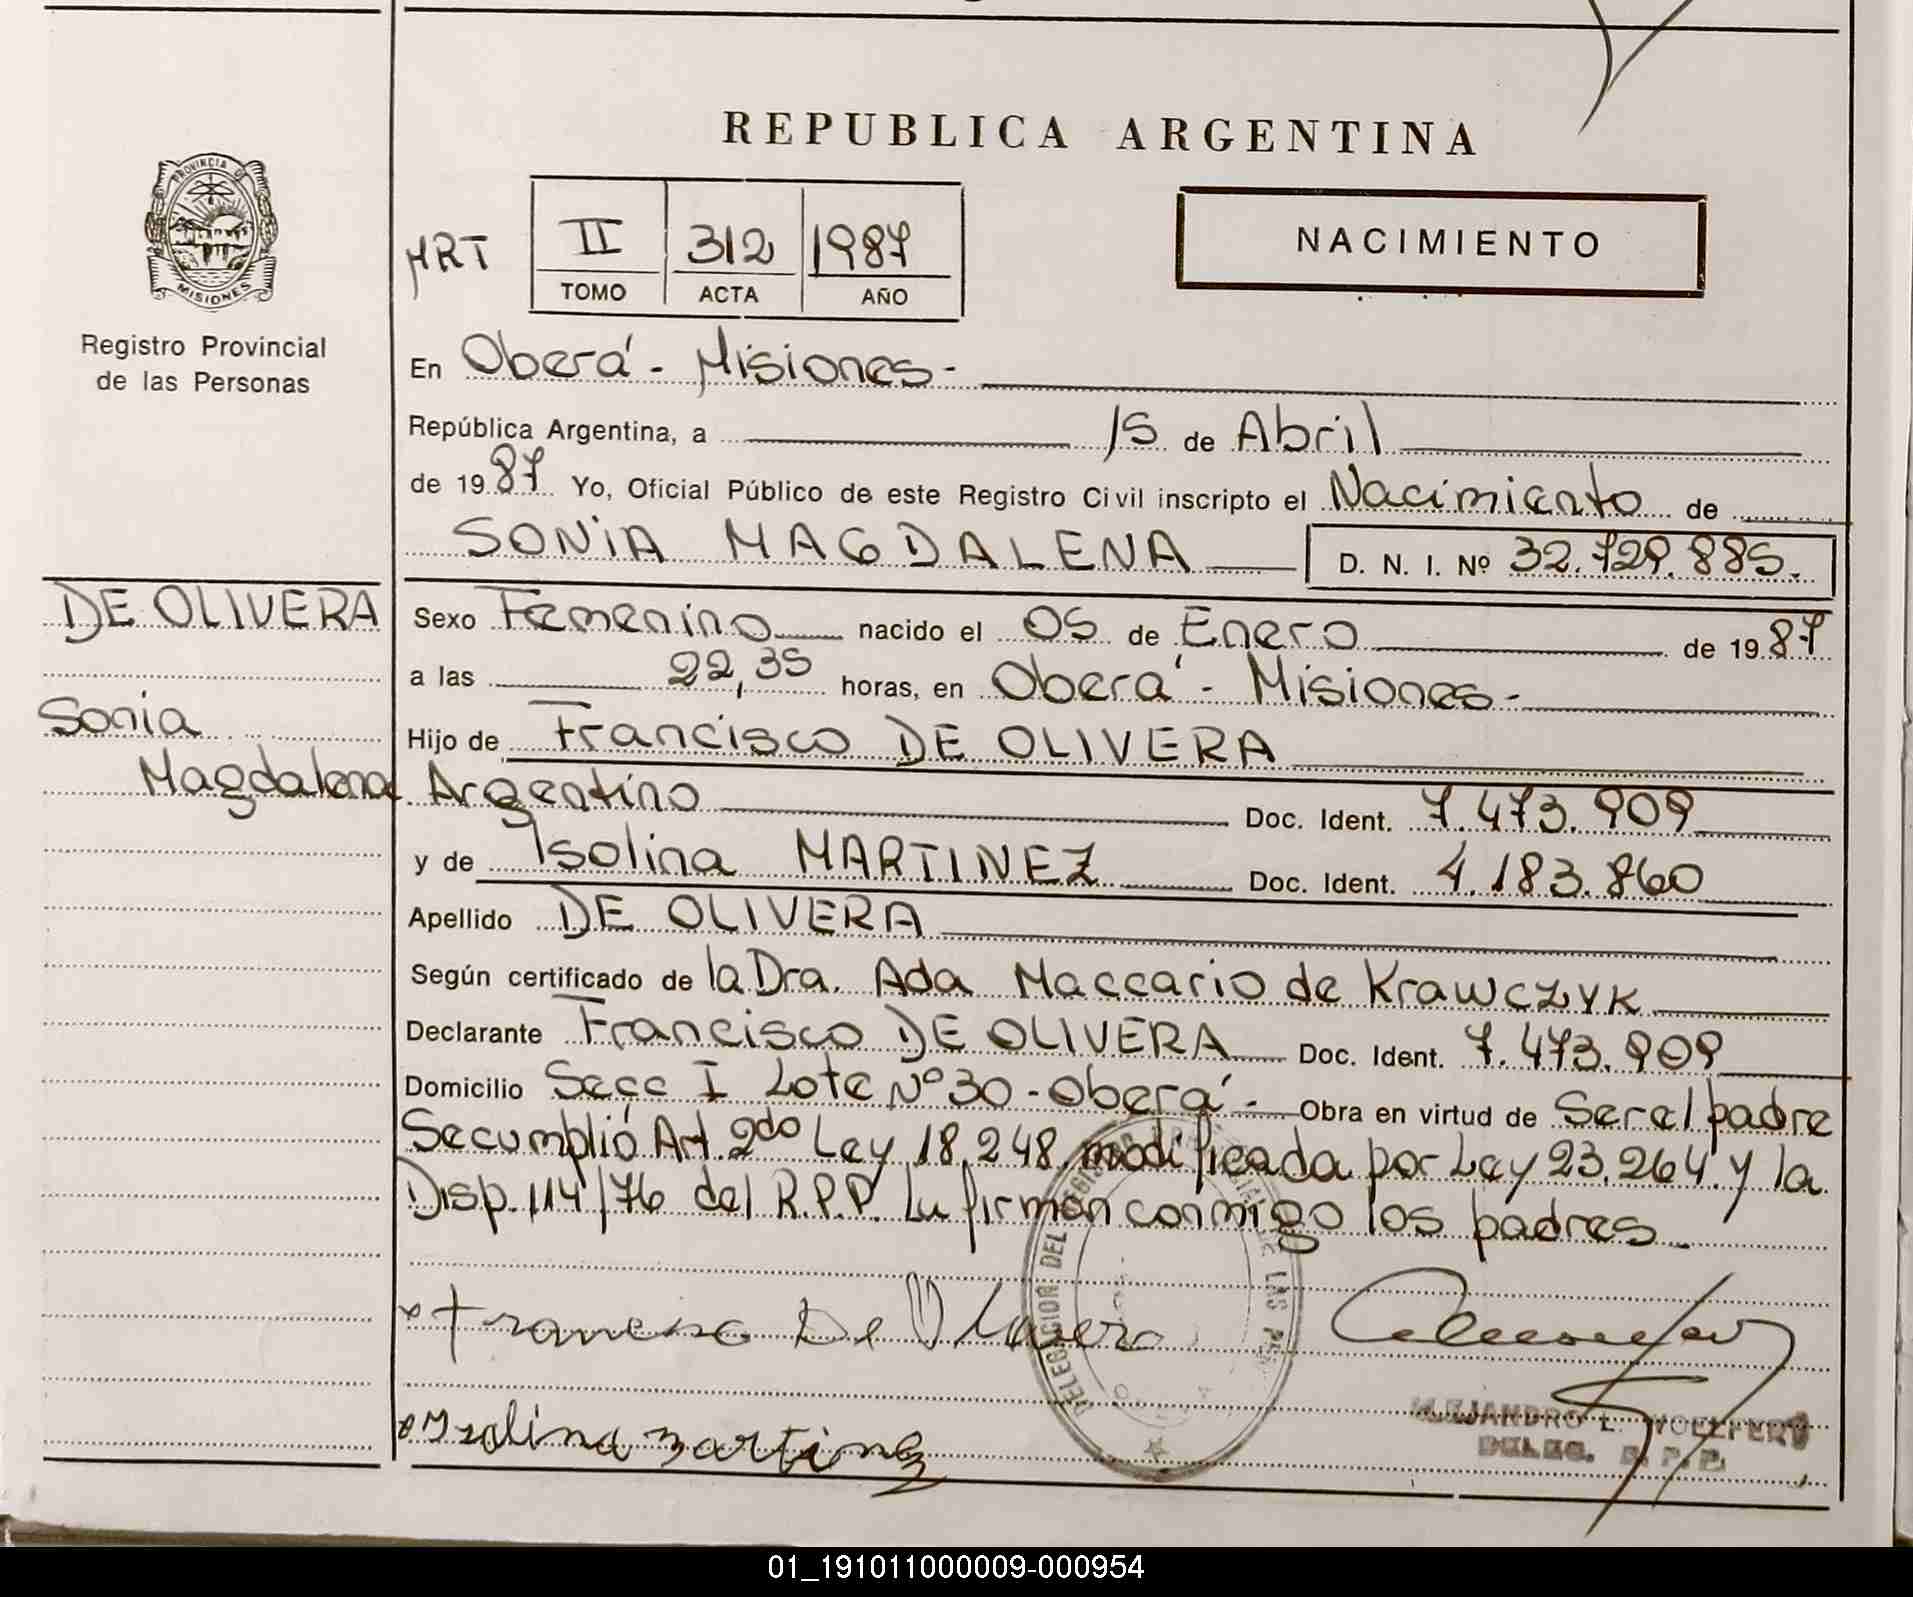 REPUBLICA ARGENTINA
PROVINCIA DE
MISIONES
Registro Provincial
de las Personas
MRT
II 312 1987
TOMO ACTA AÑO
NACIMIENTO
En Oberá - Misiones -
República Argentina, a 15 de Abril
de 1987 Yo, Oficial Público de este Registro Civil inscripto el Nacimiento de
SONIA MAGDALENA D. N. I. Nº 32.729.885.
DE OLIVERA
Sonia
Magdalena
Sexo Femenino nacido el 05 de Enero de 1987
a las 22,35 horas, en Oberá - Misiones -
Hijo de Francisco DE OLIVERA
Argentino Doc. Ident. 7.473.909
y de Isolina MARTINEZ Doc. Ident. 4.183.860
Apellido DE OLIVERA
Según certificado de la Dra. Ada Maccario de Krawczyk
Declarante Francisco DE OLIVERA Doc. Ident. 7.473.909
Domicilio Secc I Lote Nº 30 - Oberá - Obra en virtud de Ser el padre
Se cumplió Art. 2do Ley 18.248 modificada por Ley 23.264 y la
Disp. 114/76 del R.P.P. Lu firman conmigo los padres -
DELEGACION DEL REGISTRO DE LAS
Francisco De Olivera
ALEJANDRO L. WOELFERT
DELEG. R. P. P.
Isolina Martinez
01_191011000009-000954